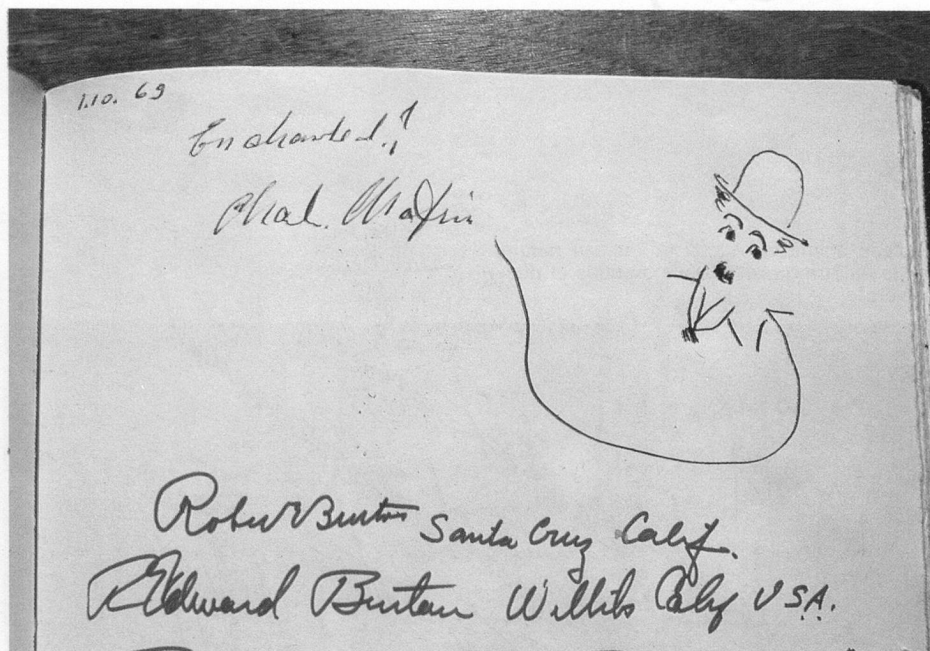 1.10. 69
Enchanted!!
Chas. Chaplin
Robert Burton Santa Cruz Calif.
R Edward Burton Willits Calif USA.